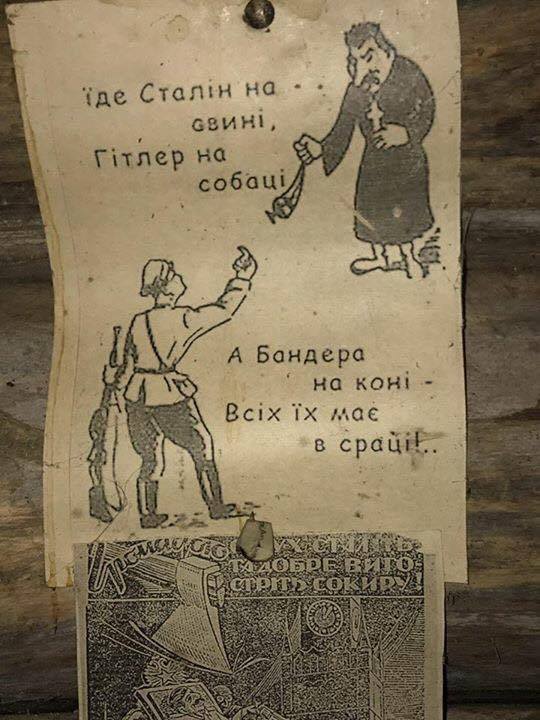 їде Сталін на
свині,
Гітлер на
собаці
А Бандера
на коні -
Всіх їх має
в сраці!..
ТА ДОБРЕ ВИГО-
СТРІТЬ СОКИРУ!